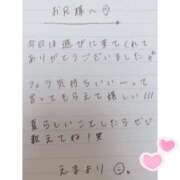 お兄様へ☺
昨日は遊びに来てくれて
ありがとうございました
フェラ気持ちいいーって
言ってもらえて嬉しい!!!
夏らしいことしたらぜひ
教えてね!笑
えまより☺